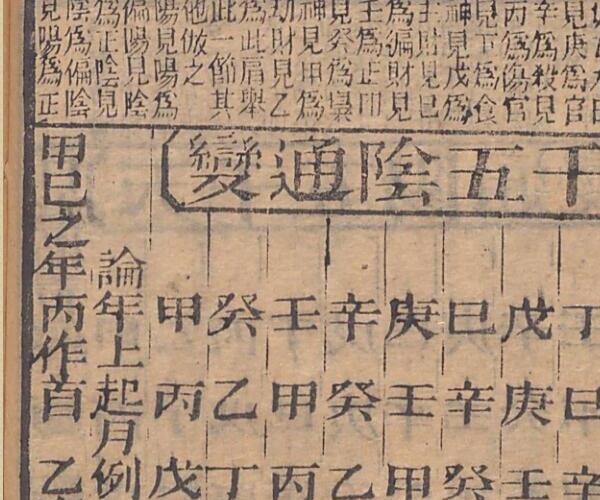 見庚為官
辛為殺見
丙為傷官
見丁為食
神見戊為
正財見巳
為偏財見
壬為正印
見癸為梟
神見甲為
劫財見乙
為比肩舉
此一節其
他倣之
陽見陽為
偏陽見陰
為正陰見
陰為偏陰
見陽為正
干五陰通變
丁巳辛
戊庚壬
巳辛癸
庚壬甲
辛癸乙
壬甲丙
癸乙丁
甲丙戊
論年上起月例
甲巳之年丙作首 乙